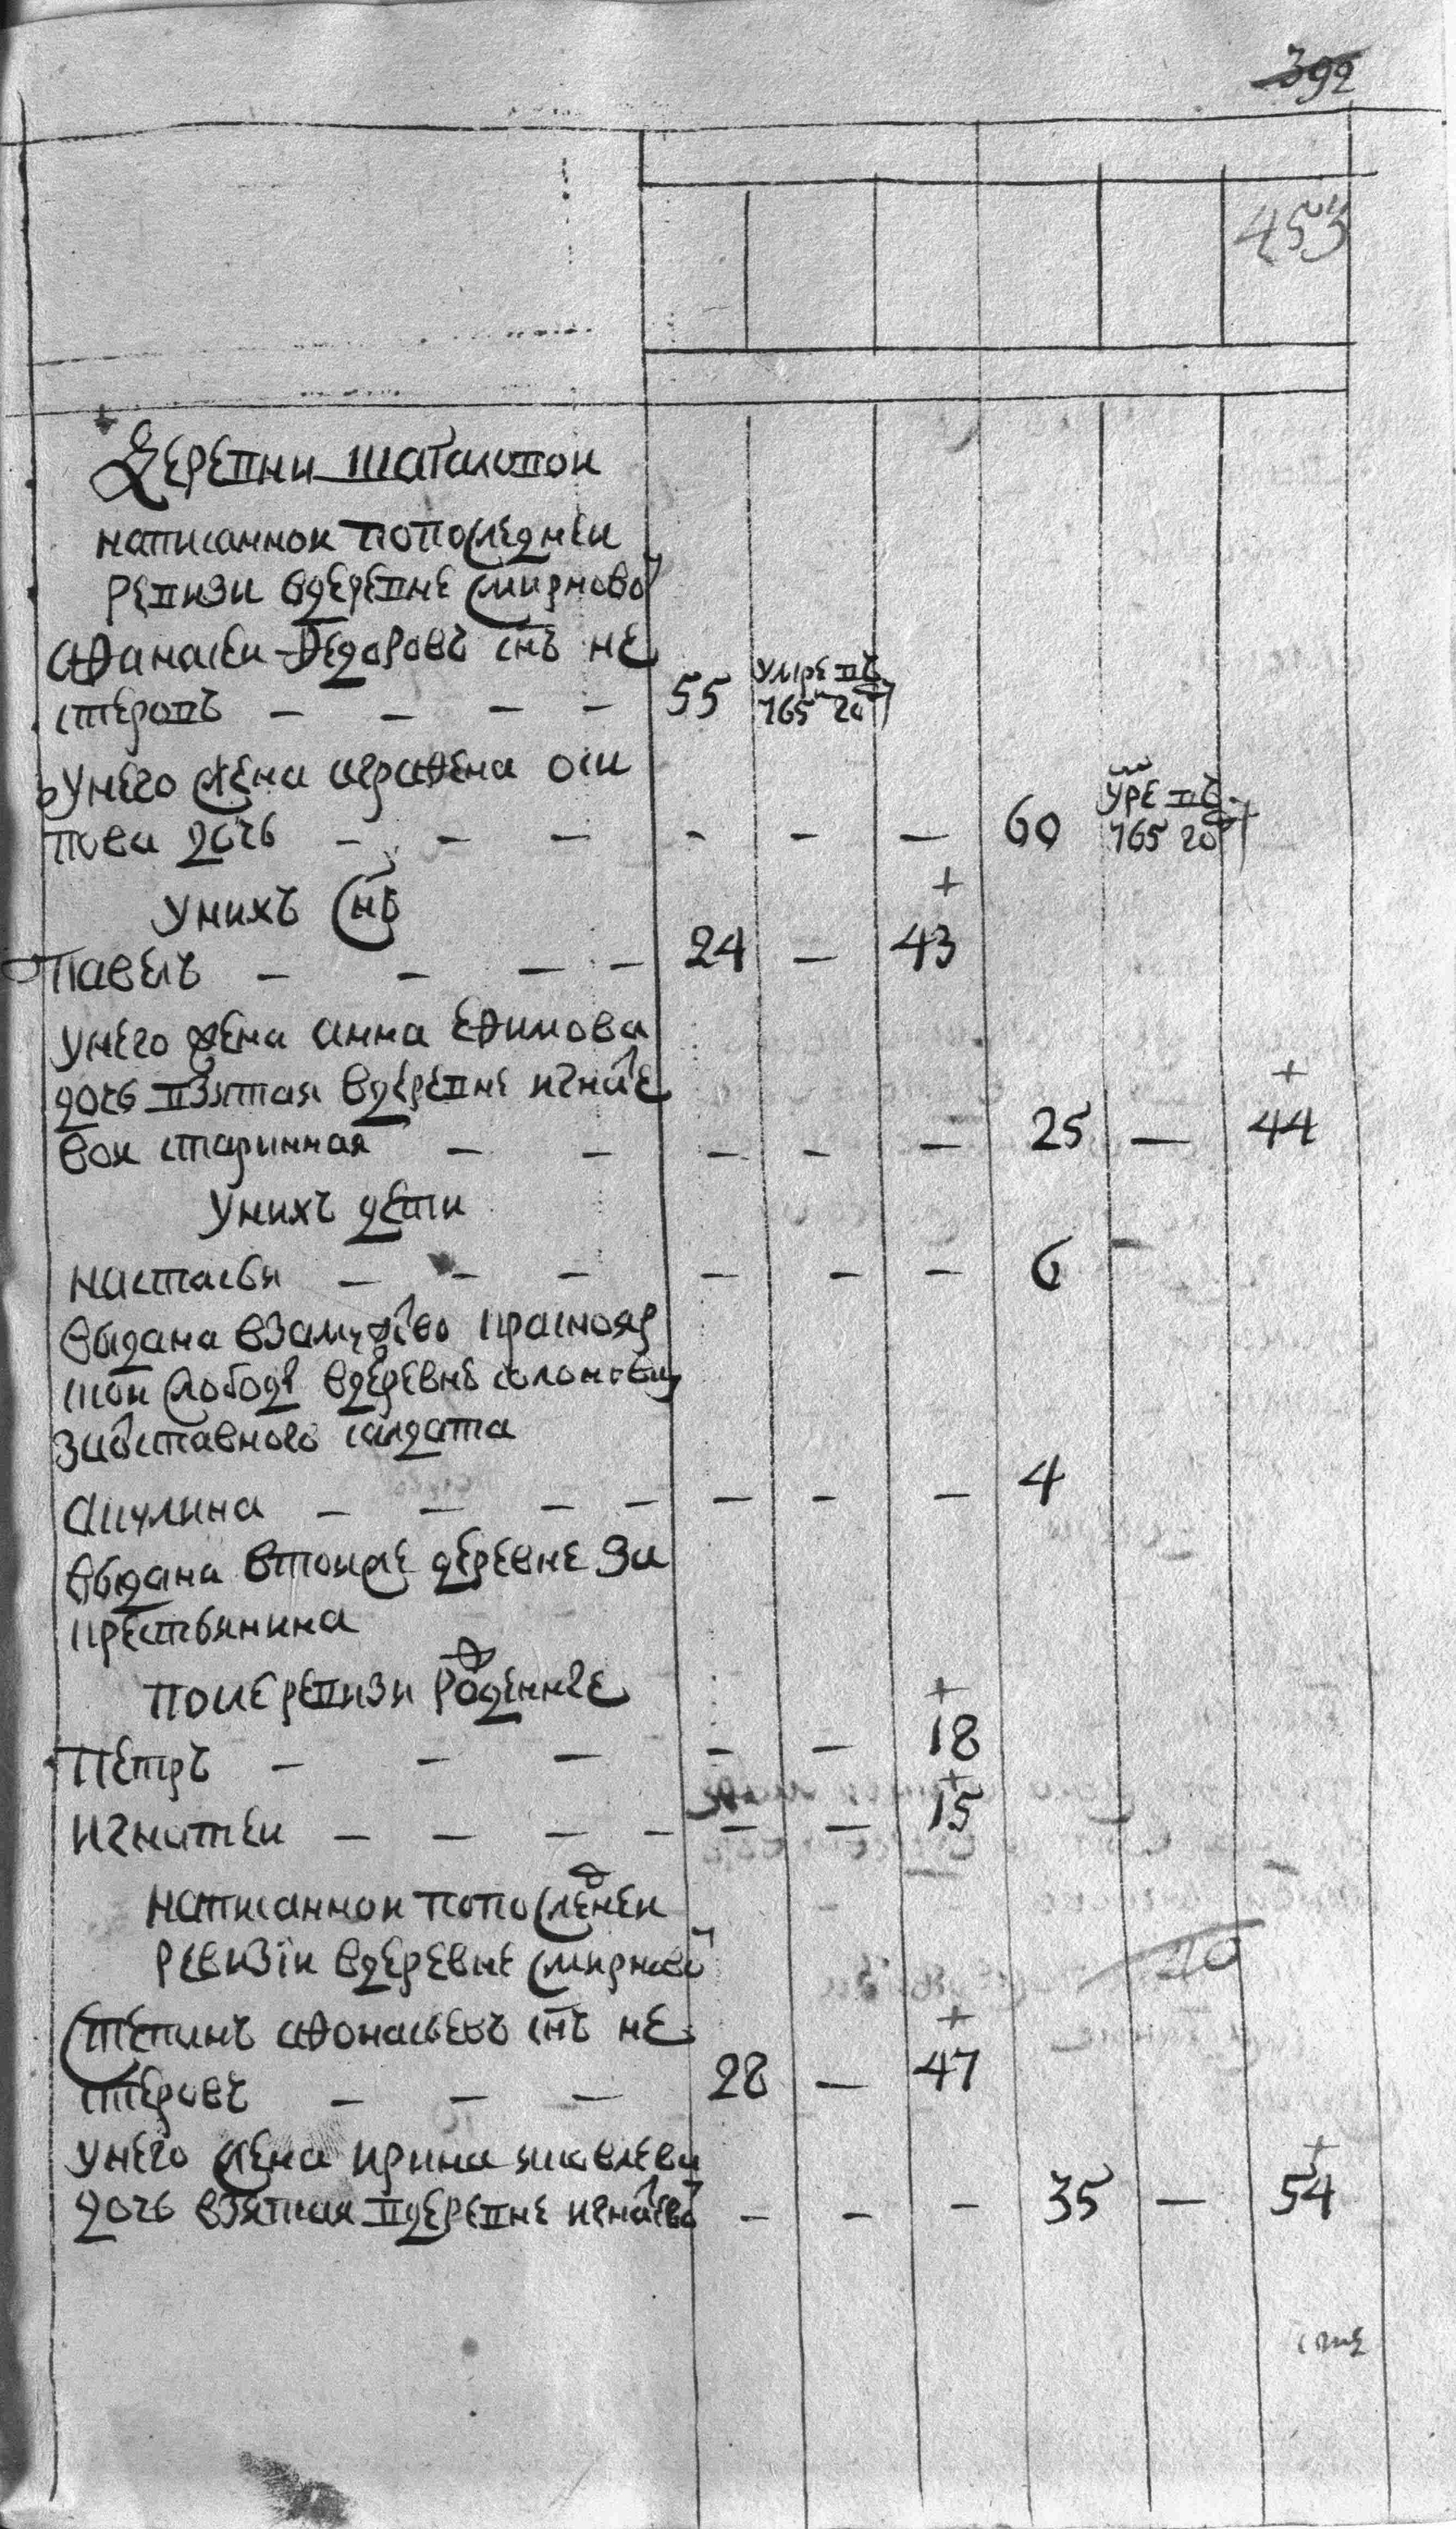 392
453
Деревни Шаталовой
написанной попоследней
ревизи вдеревне Смирновой
Афанасеи Федоровъ снъ не
стеровъ — — — — 55 умре въ 765 м год
Унего жена аграфена оси
пова дочь — — — - — — 60 умре въ 765 год
Унихъ снъ
+
Павелъ — — — — 24 — 43
унего жена анна Ефимова
дочь взятая вдеревне игнатье +
вои старинная — — — - — 25 — 44
Унихъ дети
настасья — — — — — — 6 —
выдана взамужство краснояр
скои слободы вдеревне
заоставного салдата
Акулина — — — — — — — 4
выдана втоиже деревне за
крестьянина
послеревизи рожденные
+
Петръ — — — — — 18
+
Игнатеи — — — — — — 15
написаннои попоследнеи
ревизіи вдеревне Смирновой
20
Степанъ афонасьевъ снъ не +
стеровъ — — — 28 — 47
унего жена ирина яковлева +
дочь взятая вдеревне игнатьевой — — - 35 — 54